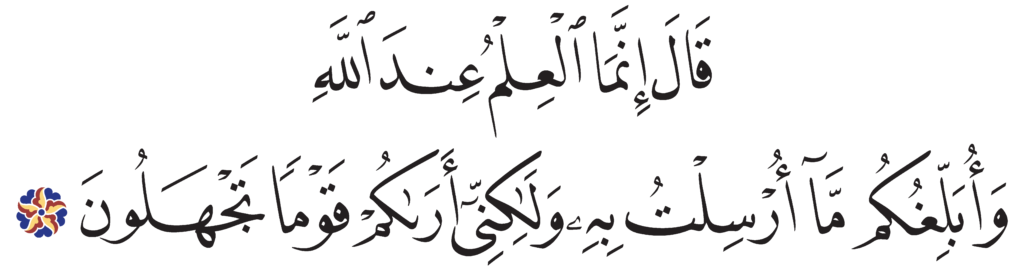 قَالَ إِنَّمَا ٱلْعِلْمُ عِندَ ٱللَّهِ
وَأُبَلِّغُكُم مَّآ أُرْسِلْتُ بِهِۦ وَلَٰكِنِّىٓ أَرَىٰكُمْ قَوْمًا تَجْهَلُونَ